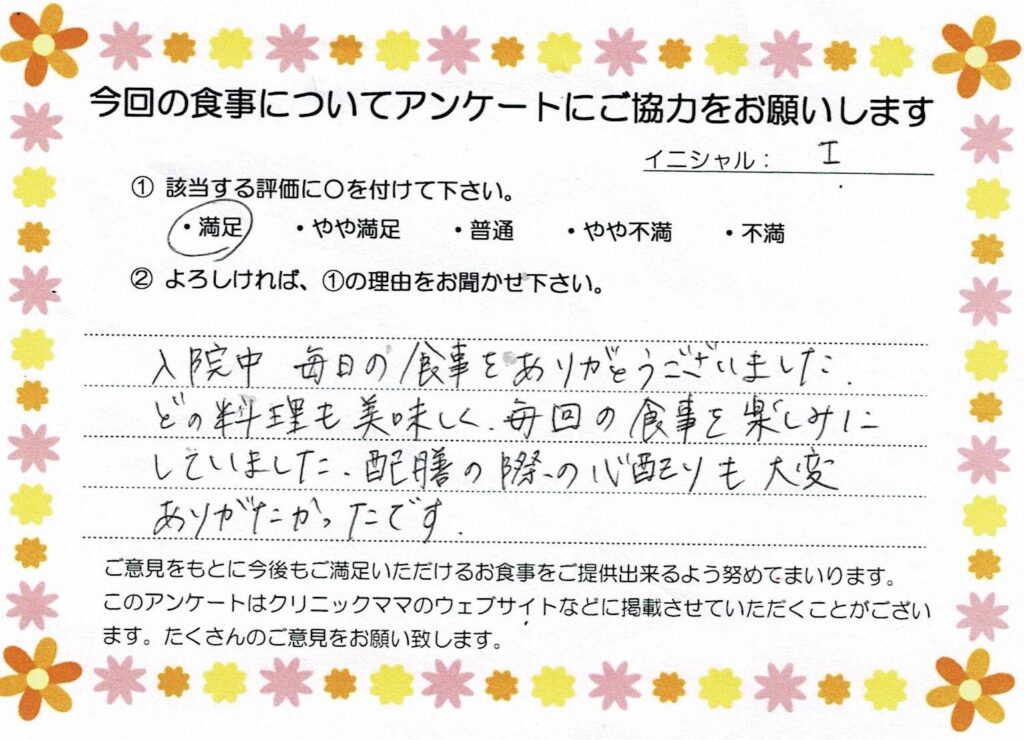 今回の食事についてアンケートにご協力をお願いします
イニシャル： I
① 該当する評価に〇を付けて下さい。
・満足 ・やや満足 ・普通 ・やや不満 ・不満
② よろしければ、①の理由をお聞かせ下さい。
入院中 毎日の食事をありがとうございました.
どの料理も美味しく、毎回の食事を楽しみに
していました、配膳の際の心配りも大変
ありがたかったです.
ご意見をもとに今後もご満足いただけるお食事をご提供出来るよう努めてまいります。
このアンケートはクリニックママのウェブサイトなどに掲載させていただくことがござい
ます。たくさんのご意見をお願い致します。